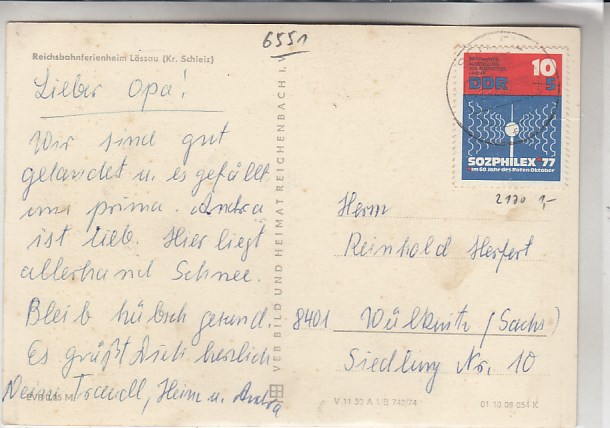 6551
Reichsbahnferienheim Lössau (Kr. Schleiz)
Lieber Opa!
Wir sind gut
gelandet u. es gefällt
uns prima. Andra
ist lieb. Hier liegt
allerhand Schnee.
Bleib hübsch gesund.
Es grüßt Dich herzlich
Deine Traudl, Heim u. Andra
VEB BILD UND HEIMAT REICHENBACH I. V.
DDR
10
+5
SOZPHILEX '77
im 60 Jahr des Roten Oktober
2170 1,-
Herrn
Reinhold Herfert
8401 Wülknitz (Sachs)
Siedlung Nr. 10
V 11 30 A 1 B 742/74
01 10 09 054 K